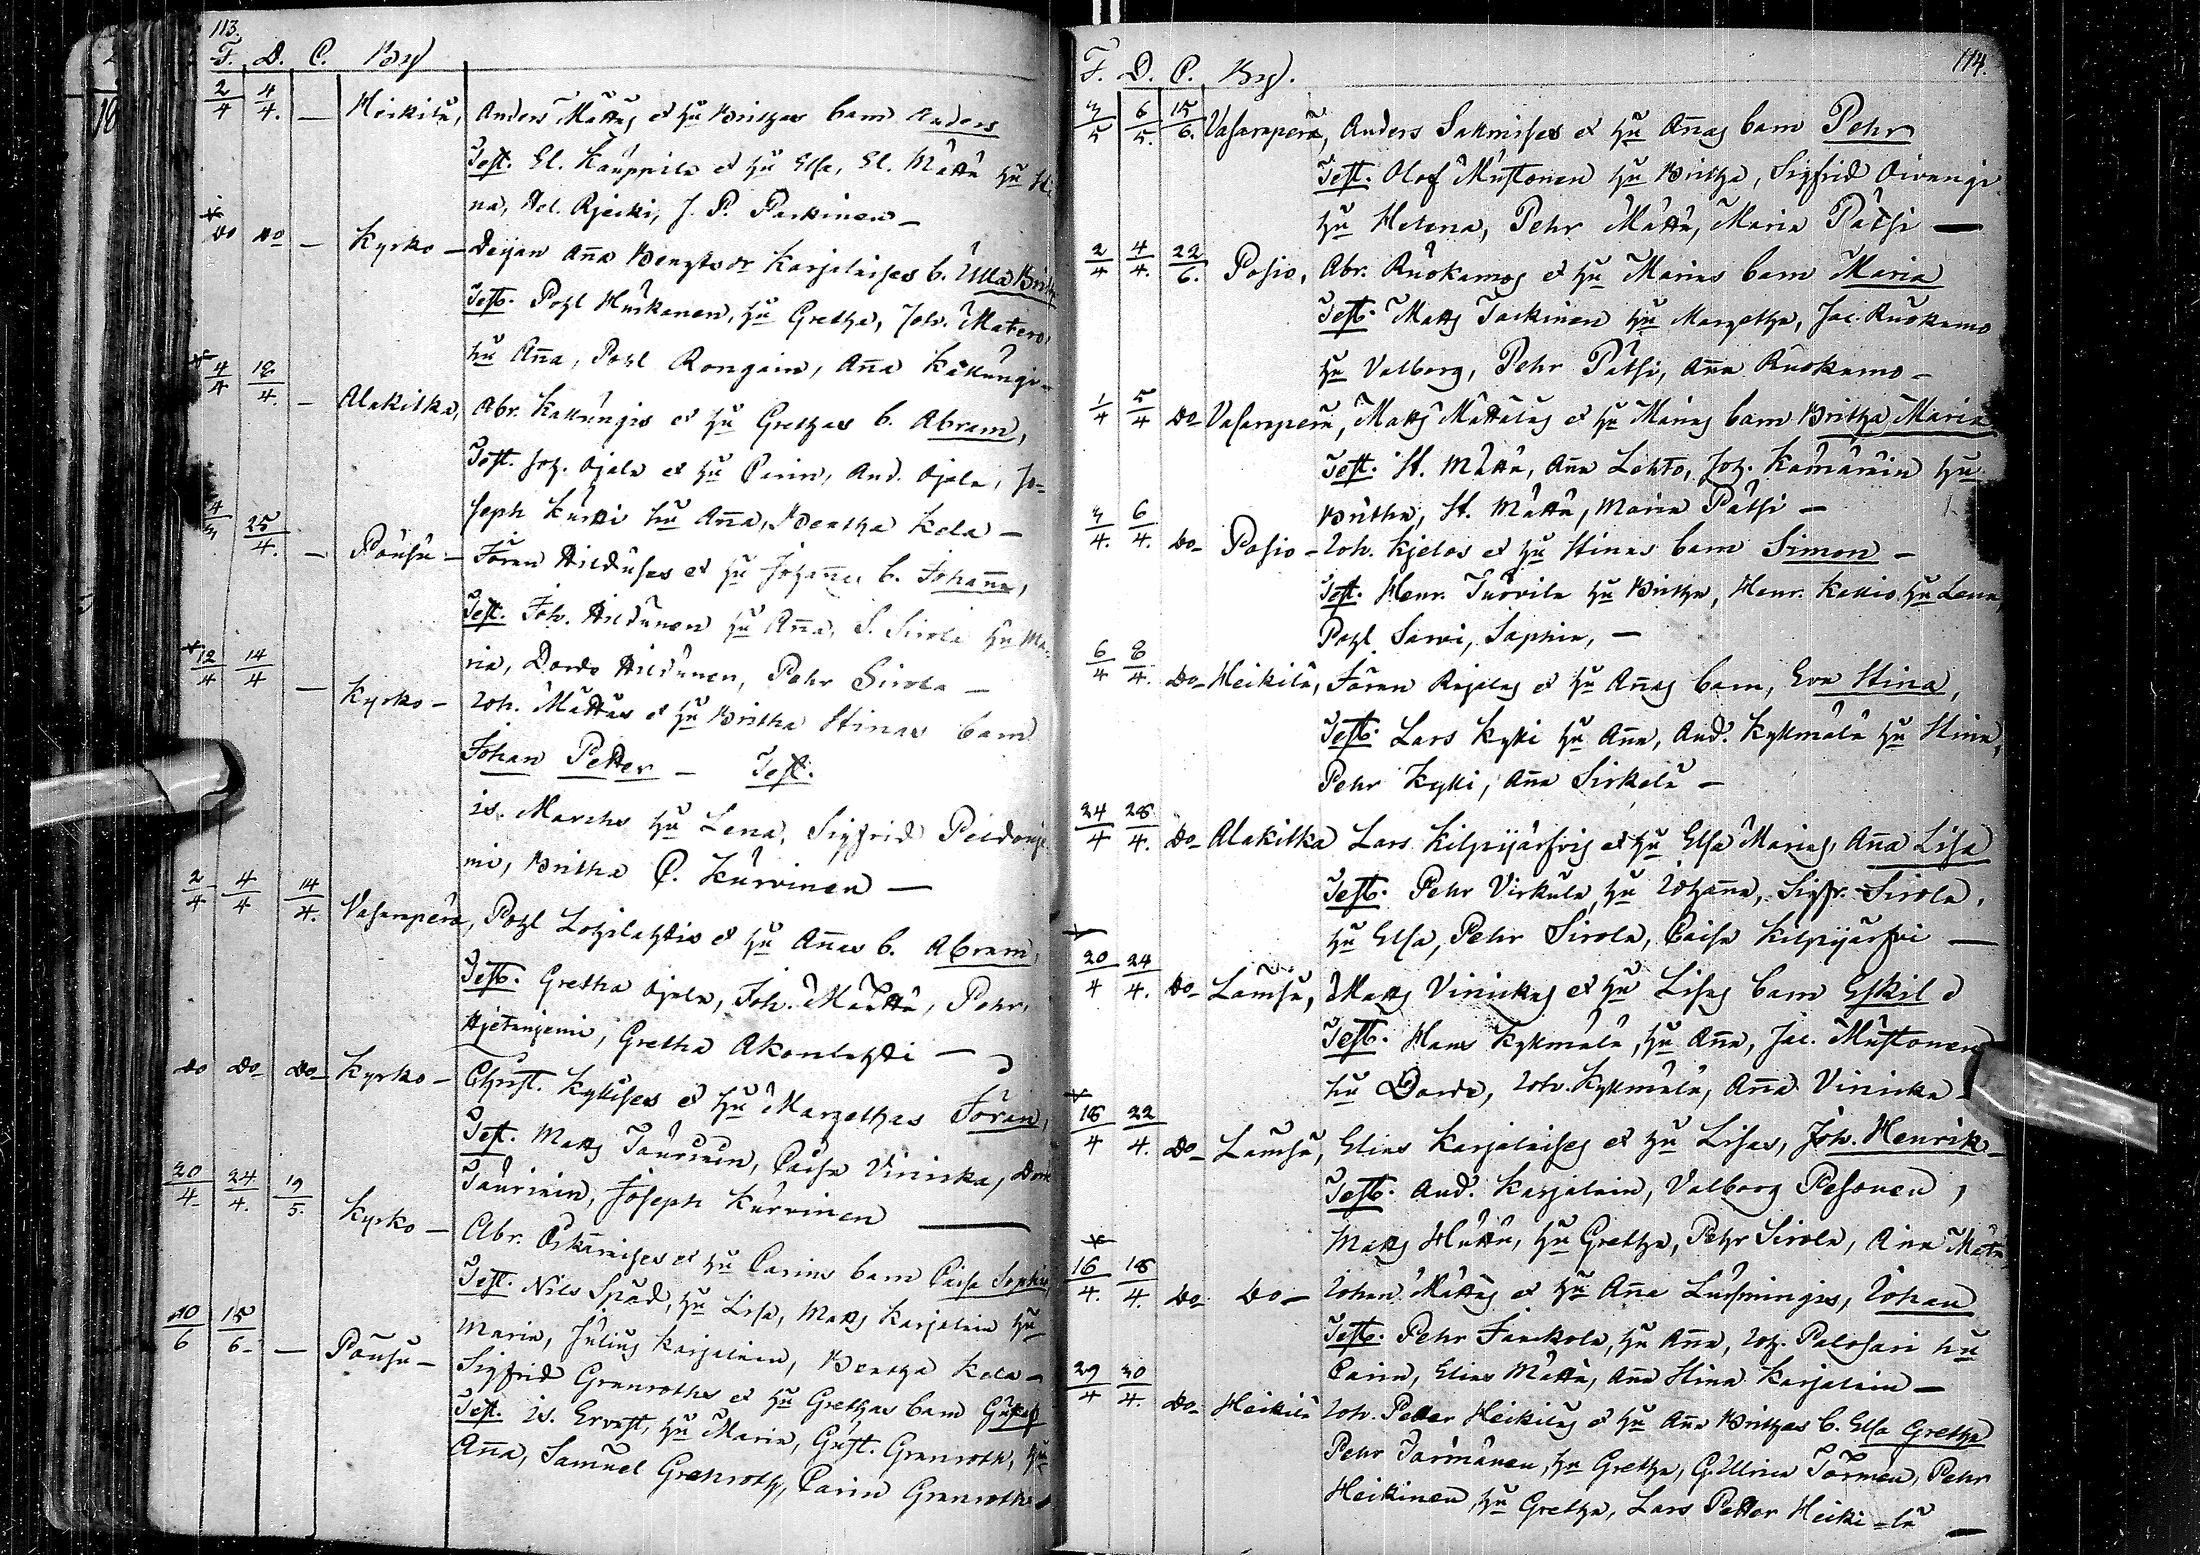 113.
F. D. C. By
2/4 4/4. — Heikilä, Anders Mättas et hu Brithas barn Anders
Test. El. Kauppila et hu Elsa, El. Mättä hu Sti
na, Hel. Rjeiki, J. P. Parkinen —
Do Do — Kyrko — Deijan Aña Bengtsdr Karjalaises b. Ulla Brita
Test. Pohl Huskanen, hu Gretha, Joh. Matero,
hu Aña, Pohl Rongain, Aña Kallungi —
4/4 18/4. — Alakitka, Abr. Kallungis et hu Grethas b. Abram,
Test. Joh. Ojala et hu Carin, And. Ojala, Jo-
seph Kurtti hu Aña, Bertha Kela —
25/4. — Pousu — Jöran Hilduses et hu Johañas b. Johaña,
Test. Joh. Hildunen hu Aña, S. Sirola hu Ma-
ria, Dordo Hildunen, Pehr Sirola —
12/4 14/4 — Kyrko — Joh. Mättäs et hu Britha Stinas barn
Johan Petter — Test.
is. Marchs hu Lena, Sigfrid
mi, Britha C. Kurvinen —
2/4 4/4 14/4. Vasaraperä, Pohl Lohilahtis et hu Añas b. Abram,
Test. Gretha Ojala, Joh. Määttä, Pehr
Hjetanjemi, Gretha Akonlahti —
Do Do Do Kyrko — Christ. Kyllises et hu Margethas Jöran,
Test. Matts Taurinen, Caisa Vinicka,
Taurinin, Joseph Kurvinen —
20/4. 24/4. 19/5. Kyrko — Abr. Oskaraises et hu Carins barn Caisa Sophia,
Test. Nils Spåd, hu Lisa, Matts Karjalain hu
Maria, Julius Karjalain, Bertha Kela —
10/6 15/6. — Pousu — Sigfrid Granroths et hu Grethas barn Gustaf
Test. is. Ervast, hu Maria, Gust. Granroth, hu
Aña, Samuel Granroth, Carin Granroth
F. D. C. By. 114.
3/5 6/5. 15/6. Vasaraperä, Anders Salmises et hu Añas barn Pehr
Test. Olof Mustonen hu Britha, Sigfrid Oivangi
hu Helena, Pehr Mättä, Maria Pätsi —
2/4 4/4. 22/6. Posio, Abr. Ruokamos et hu Marias barn Maria
Test. Matts Tarkinen hu Margetha, Jac. Ruokamo
hu Valborg, Pehr Pätsi, Aña Ruokamo —
1/4 5/4 Do Vasaraperä, Matts Mättäläs et hu Marias barn Britha Maria
Test. H. Mättä, Aña Lehto, Joh. Kämäräin hu
Britha, H. Mättä, Maria Pätsi —
3/4. 6/4. Do — Posio — Joh. Kjelos et hu Stinas barn Simon —
Test. Henr. Tuovila hu Britha, Henr. Kallio, hu Lena,
Pohl Sarvi, Saphia, —
6/4 8/4. Do — Heikilä, Jöran Rajalas et hu Añas barn, Eva Stina,
Test. Lars Kylli hu Aña, And. Kyllmälä hu Stina,
Pehr Kylli, Aña Sirkelä —
24/4 28/4. Do — Alakitka Lars Kilpijärfvis et hu Elsa Marias, Aña Lisa
Test. Pehr Virkula, hu Johaña, Sigfr. Sirola,
hu Elsa, Pehr Sirola, Caisa Kilpijärfvi —
20/4 24/4. Do — Lämsä, Matts Vinickas et hu Lisas barn Eskil
Test. Hans Kyllmälä, hu Aña, Jac. Mustonen
hu Dorde, Joh. Kyllmälä, Aña Vinicka —
18/4 22/4. Do — Lämsä, Elias Karjalaises et hu Lisas, Joh. Henrik —
Test. And. Karjalain, Valborg Pesonen,
Matts Hättä, hu Gretha, Pehr Sirola, Aña
16/4. 18/4. Do Do — Johan Mättäs et hu Aña Lusmingis, Johan
Test. Pehr Jaakola, hu Aña, Joh. Palosari hu
Carin, Elias Mättä, Aña Stina Karjalain —
29/4 30/4. Do — Heikilä Joh. Petter Heikiläs et hu Aña Brithas b. Elsa Gretha
Pehr Törmänen, hu Gretha, G. Ulrica Törmän, Pehr
Heikinen hu Gretha, Lars Petter Heiki-lä —